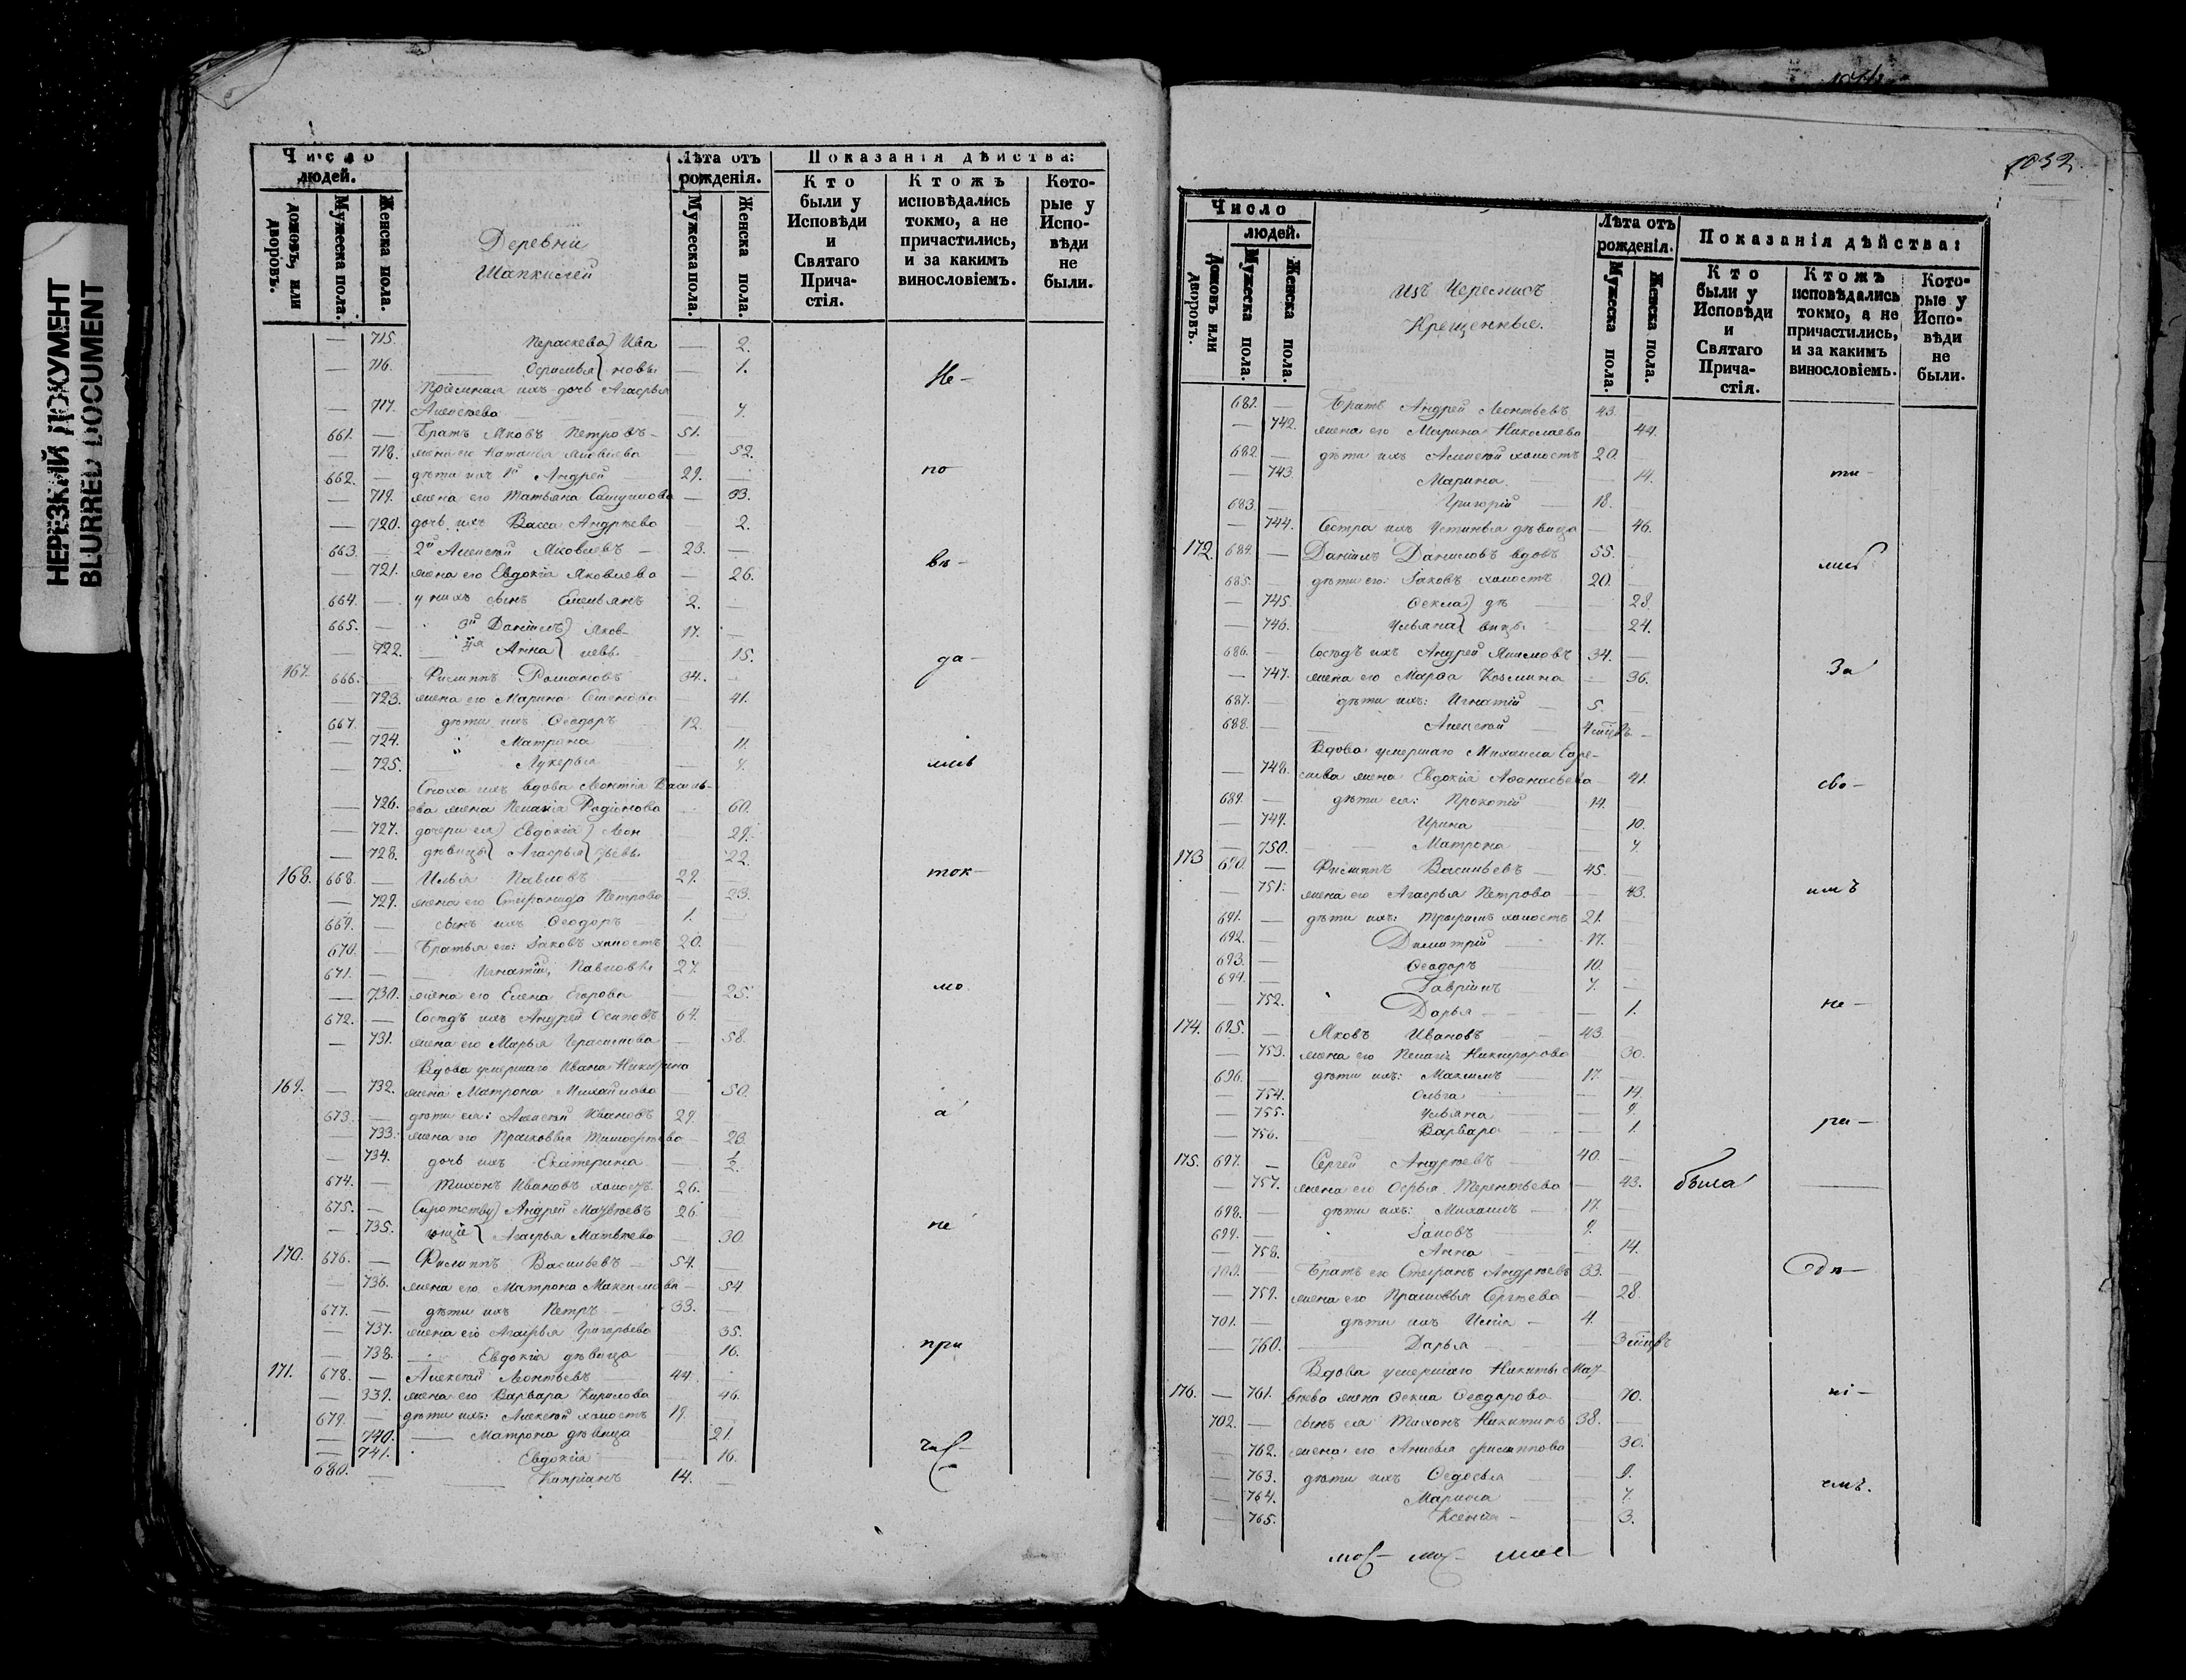 НЕРЕЗКИЙ ДОКУМЕНТ
BLURRED DOCUMENT
Число людей. Лѣта отъ рожденія. Показанія дѣйства:
домовъ, или дворовъ. Мужеска пола. Женска пола. Мужеска пола. Женска пола. Кто были у Исповѣди и Святаго Прича-стія. Ктожъ исповѣдались токмо, а не причастились, и за какимъ винословіемъ. Кото-рые у Испо-вѣди не были.
Деревни
Шапкилей
— 715. Параскева } Ива — 2.
— 716. Офимья } новы — 1. Не-
Пріемная ихъ дочь Агафья
— 717. Алексѣева — 7.
661. — Братъ Яковъ Петровъ — 51. —
— 718. жена его Наталья Яковлева — 52.
662. — дѣти ихъ 1й Андрей 29. — по-
— 719. жена его Татьяна Самуилова — 33.
— 720. дочь ихъ Васса Андрѣева — 2.
663. — 2й Алексѣй Яковлевъ — 23. —
— 721. жена его Евдокія Яковлева — 26. вѣ-
664. — у нихъ сынъ Емельянъ 2. —
665. — 3й Даніилъ } Яков- 17. —
— 722. Анна } левы — 15. да-
167. 666. — Филиппъ Романовъ 34. —
— 723. жена его Марина Семенова — 41.
667. — дѣти ихъ Ѳеодоръ 12. —
— 724. Матрона — 11.
— 725. Лукерья — 7. лись
Сноха ихъ вдова Леонтія Василь-
— 726. ева жена Пелагія Родіонова — 60.
— 727. дочери ея } Евдокія } Леон — 29.
— 728. дѣвицы } Агафья } тьевы — 22.
168. 668. — Илья Павловъ 29. — ток-
— 729. жена его Степанида Петрова — 23.
669. — сынъ ихъ Ѳеодоръ 1. —
670. — Братья его: Іаковъ холостъ 20. —
671. — Игнатій, Павловы 27. —
— 730. жена его Елена Егорова — 25. мо
672. — Сосѣдъ ихъ Андрей Осиповъ 64. —
— 731. жена его Марья Герасимова — 58.
Вдова умершаго Ивана Никифира
169. — 732. жена Матрона Михайлова — 50.
673. — дѣти ея: Алексѣй Ивановъ 29. — а
— 733. жена его Прасковья Тимофѣева — 23.
— 734. дочь ихъ Екатерина — ½
674. — Тихонъ Ивановъ холостъ 26. —
675. — Сиротству } Андрей Матвѣевъ 26. —
— 735. ющіе } Агафья Матвѣева — 30. не
170. 676. — Филиппъ Васильевъ — 54. —
— 736. жена его Матрона Максимова — 54
677. — дѣти ихъ Петръ 33. —
— 737. жена его Агафья Григорьева — 35.
— 738. Евдокія дѣвица — 16. при
171. 678. — Алексѣй Леонтьевъ 44. —
— 339. жена его Варвара Кирилова — 46.
679. — дѣти ихъ: Алексѣй холостъ 19. —
— 740. Матрона дѣвица — 21. час-
— 741. Евдокія — 16.
680. — Кипріанъ 14. —
1032.
Число людей. Лѣта отъ рожденія. Показанія дѣйства:
Домовъ или дворовъ. Мужеска пола. Женска пола. Мужеска пола. Женска пола. Кто были у Исповѣди и Святаго Прича-стія. Ктожъ исповѣдались токмо, а не причастились, и за какимъ винословіемъ. Кото-рые у Испо-вѣди не были.
Изъ Черемисъ
Крещенные.
681. — Братъ Андрей Леонтьевъ 43. —
— 742. жена его Марина Николаева — 44.
682. — дѣти ихъ Алексѣй холостъ 20. —
— 743. Марина — 14. ти-
683. — Григорій 18. —
— 744. Сестра ихъ Устинья дѣвица — 46.
172. 684. — Даніилъ Даниловъ вдовъ 55. — лись
685. — дѣти его: Іаковъ холостъ 20. —
— 745. Ѳекла } дѣ — 28.
— 746. Ульяна } вицы — 24.
686. — Сосѣдъ ихъ Андрей Якимовъ 34. —
— 747. жена его Марѳа Козмина — 36. За
687. — дѣти ихъ: Игнатій 5. —
688. — Алексѣй —
Вдова умершаго Михаила Сер-
— 748. жена Евдокія Аѳанасьева — 41.
689. — дѣти ея: Прокопій — 14. — сво-
— 749. Ирина — 10.
— 750. Матрона — 7.
173 690. — Филиппъ Васильевъ — 45. —
— 751. жена его Агафья Петрова — 43. имъ
691. — дѣти ихъ: Трифилъ холостъ 21. —
692. — Димитрій 17. —
693. — Ѳеодоръ 10. —
694. — Гавріилъ 7. —
— 752. Дарья — 1. не-
174. 695. — Яковъ Ивановъ 43. —
— 753. жена его Пелагія Никифорова — 30.
696. — дѣти ихъ: Максимъ 17. —
— 754. Ольга — 14.
— 755. Ульяна — 9.
— 756. Варвара — 1. ра-
175. 697. — Сергей Андрѣевъ 40. —
— 757. жена его Офья Терентьева — 43. была —
698. — дѣти ихъ: Михаилъ 17. —
699. — Іаковъ 9. —
— 758. Анна — 14.
700. — Братъ его Степанъ Андрѣевъ 33. — Одѣ-
— 759. жена его Прасковья Сергѣева — 28.
701. — дѣти ихъ Илія — 4. —
— 760. Дарья —
Вдова умершаго Никиты Мат-
176. — 761. вѣева жена Ѳекла Ѳеодорова — 70. ні-
702. — сынъ ея Тихонъ Никитинъ 38. —
— 762. жена его Анисья Филиппова — 30.
— 763. дѣти ихъ Ѳедосья — 9.
— 764. Марина — 7. емъ.
— 765. Ксенія — 3.